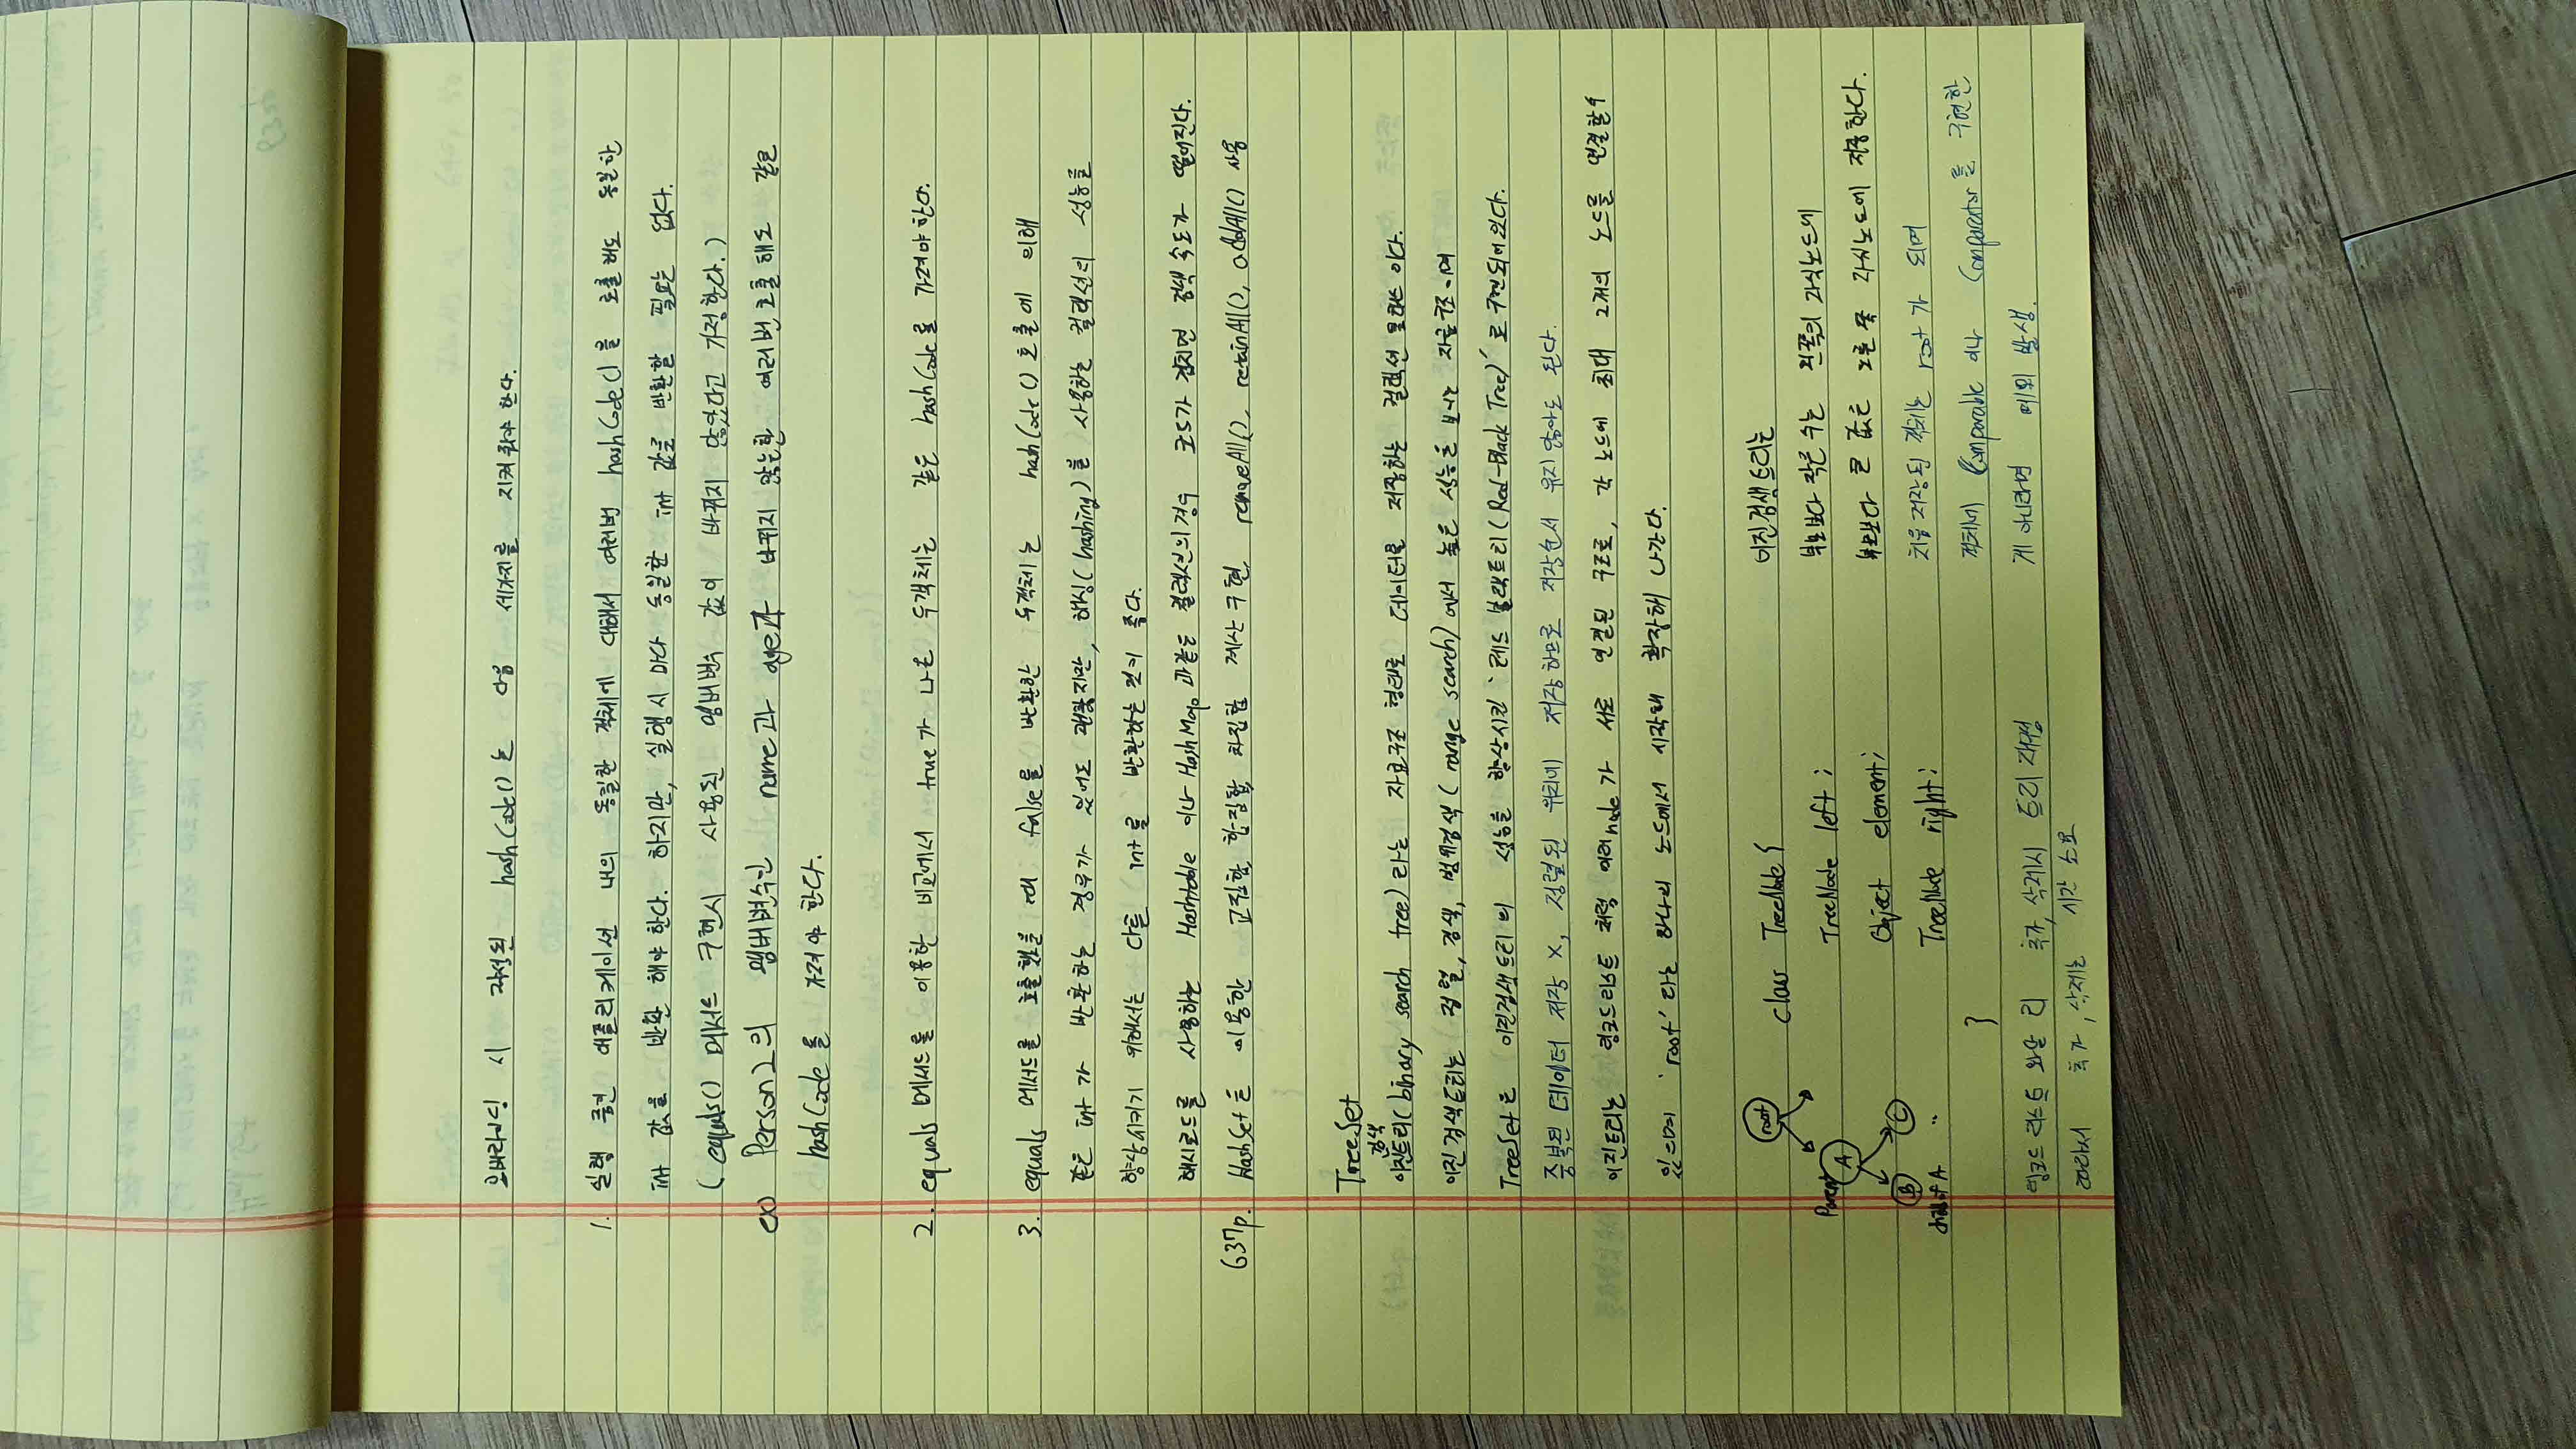 오버라이딩 시 작성된 hashCode()는 다음 세가지를 지켜줘야 한다.
1. 실행 중인 애플리케이션 내의 동일한 객체에 대해서 여러번 hashCode()를 호출해도 동일한
int 값을 반환 해야 한다. 하지만, 실행시 마다 동일한 int 값을 반환할 필요는 없다.
( equals() 메서드 구현시 사용된 멤버변수 값이 바뀌지 않았다고 가정한다.)
ex) Person2의 멤버변수인 name과 age가 바뀌지 않는한 여러번 호출해도 같은
hashCode를 가져야 한다.
2. equals 메서드를 이용한 비교에서 true가 나온 두객체는 같은 hashCode를 가져야한다.
3. equals 메서드를 호출했을 때 false를 반환한 두객체는 hashCode() 호출에 의해
같은 int가 반환하는 경우가 있어도 괜찮지만, 해싱(hashing)을 사용하는 컬렉션의 성능을
향상시키기 위해서는 다른 int를 반환하는 것이 좋다.
해시코드를 사용하는 Hashtable 이나 HashMap 과같은 컬렉션의경우 코드가 겹치면 검색 속도가 떨어진다.
637p. HashSet을 이용한 교집합, 합집합, 차집합 계산 구현. removeAll(), retainAll(), addAll() 사용
TreeSet
검색
이진트리(binary search tree)라는 자료구조 형태로 데이터를 저장하는 컬렉션 클래스 이다.
이진 검색트리는 정렬, 검색, 범위검색( range search)에서 높은 성능을 보이는 자료구조 이며
TreeSet은 이진검색트리의 성능을 향상시킨 '레드 블랙트리(Red-Black Tree)'로 구현되어있다.
중복된 데이터 저장 X, 정렬된 위치에 저장하므로 저장순서 유지 않아도 된다.
이진트리는 링크드리스트 처럼 여러node가 서로 연결된 구조로, 각 노드에 최대 2개의 노드를 연결할수
있으며 'root'라는 하나의 노드에서 시작해 확장해 나간다.
root
Parent A
B C
child of A "
class TreeNode {
TreeNode left ;
Object element;
TreeNode right ;
}
링크드 리스트 와달 리 추가, 삭제시 트리 재구성
따라서 추가, 삭제는 시간 소요
이진검색트리는
부모보다 작은 수는 왼쪽의 자식노드에
부모보다 큰 값은 오른 쪽 자식노드에 저장한다.
처음 저장된 객체는 root가 되며
객체에 Comparable 이나 Comparator를 구현한
게 아니라면 예외 발생.